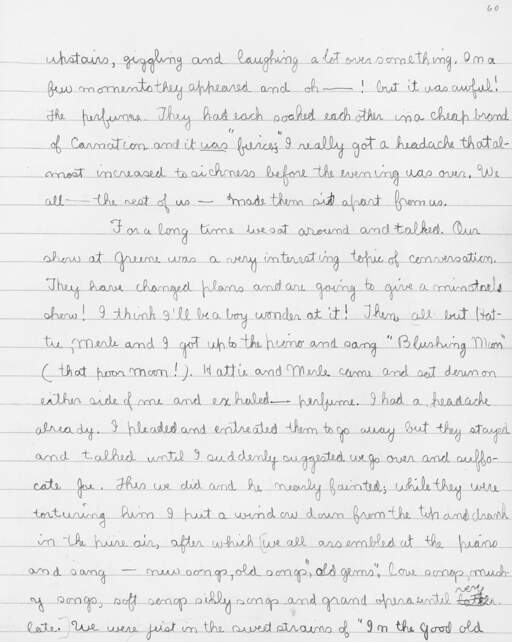 60
upstairs, giggling and laughing a lot over something. In a
few moments they appeared and oh — ! but it was awful!
the perfume. They had each soaked each other in a cheap brand
of Carnation and it was "fierce;" I really got a headache that al-
most increased to sickness before the evening was over. We
all — the rest of us — made them sit apart from us.
For a long time we sat around and talked. Our
show at Greene was a very interesting topic of conversation.
They have changed plans and are going to give a minstrel
show! I think I'll be a boy wonder at it! Then, all but Hat-
tie, Merle and I got up to the piano and sang "Blushing Moon"
(that poor moon!). Hattie and Merle came and sat down on
either side of me and exhaled — perfume. I had a headache
already. I pleaded and entreated them to go away but they stayed
and talked until I suddenly suggested we go over and suffo-
cate Joe. This we did and he nearly fainted; while they were
torturing him I put a window down from the top and drank
in the pure air, after which [we all assembled at the piano
and sang — new songs, old songs, "old gems", love songs, mush-
y songs, soft songs silly songs and grand opera until very
late.] We were just in the sweet strains of "In the Good Old